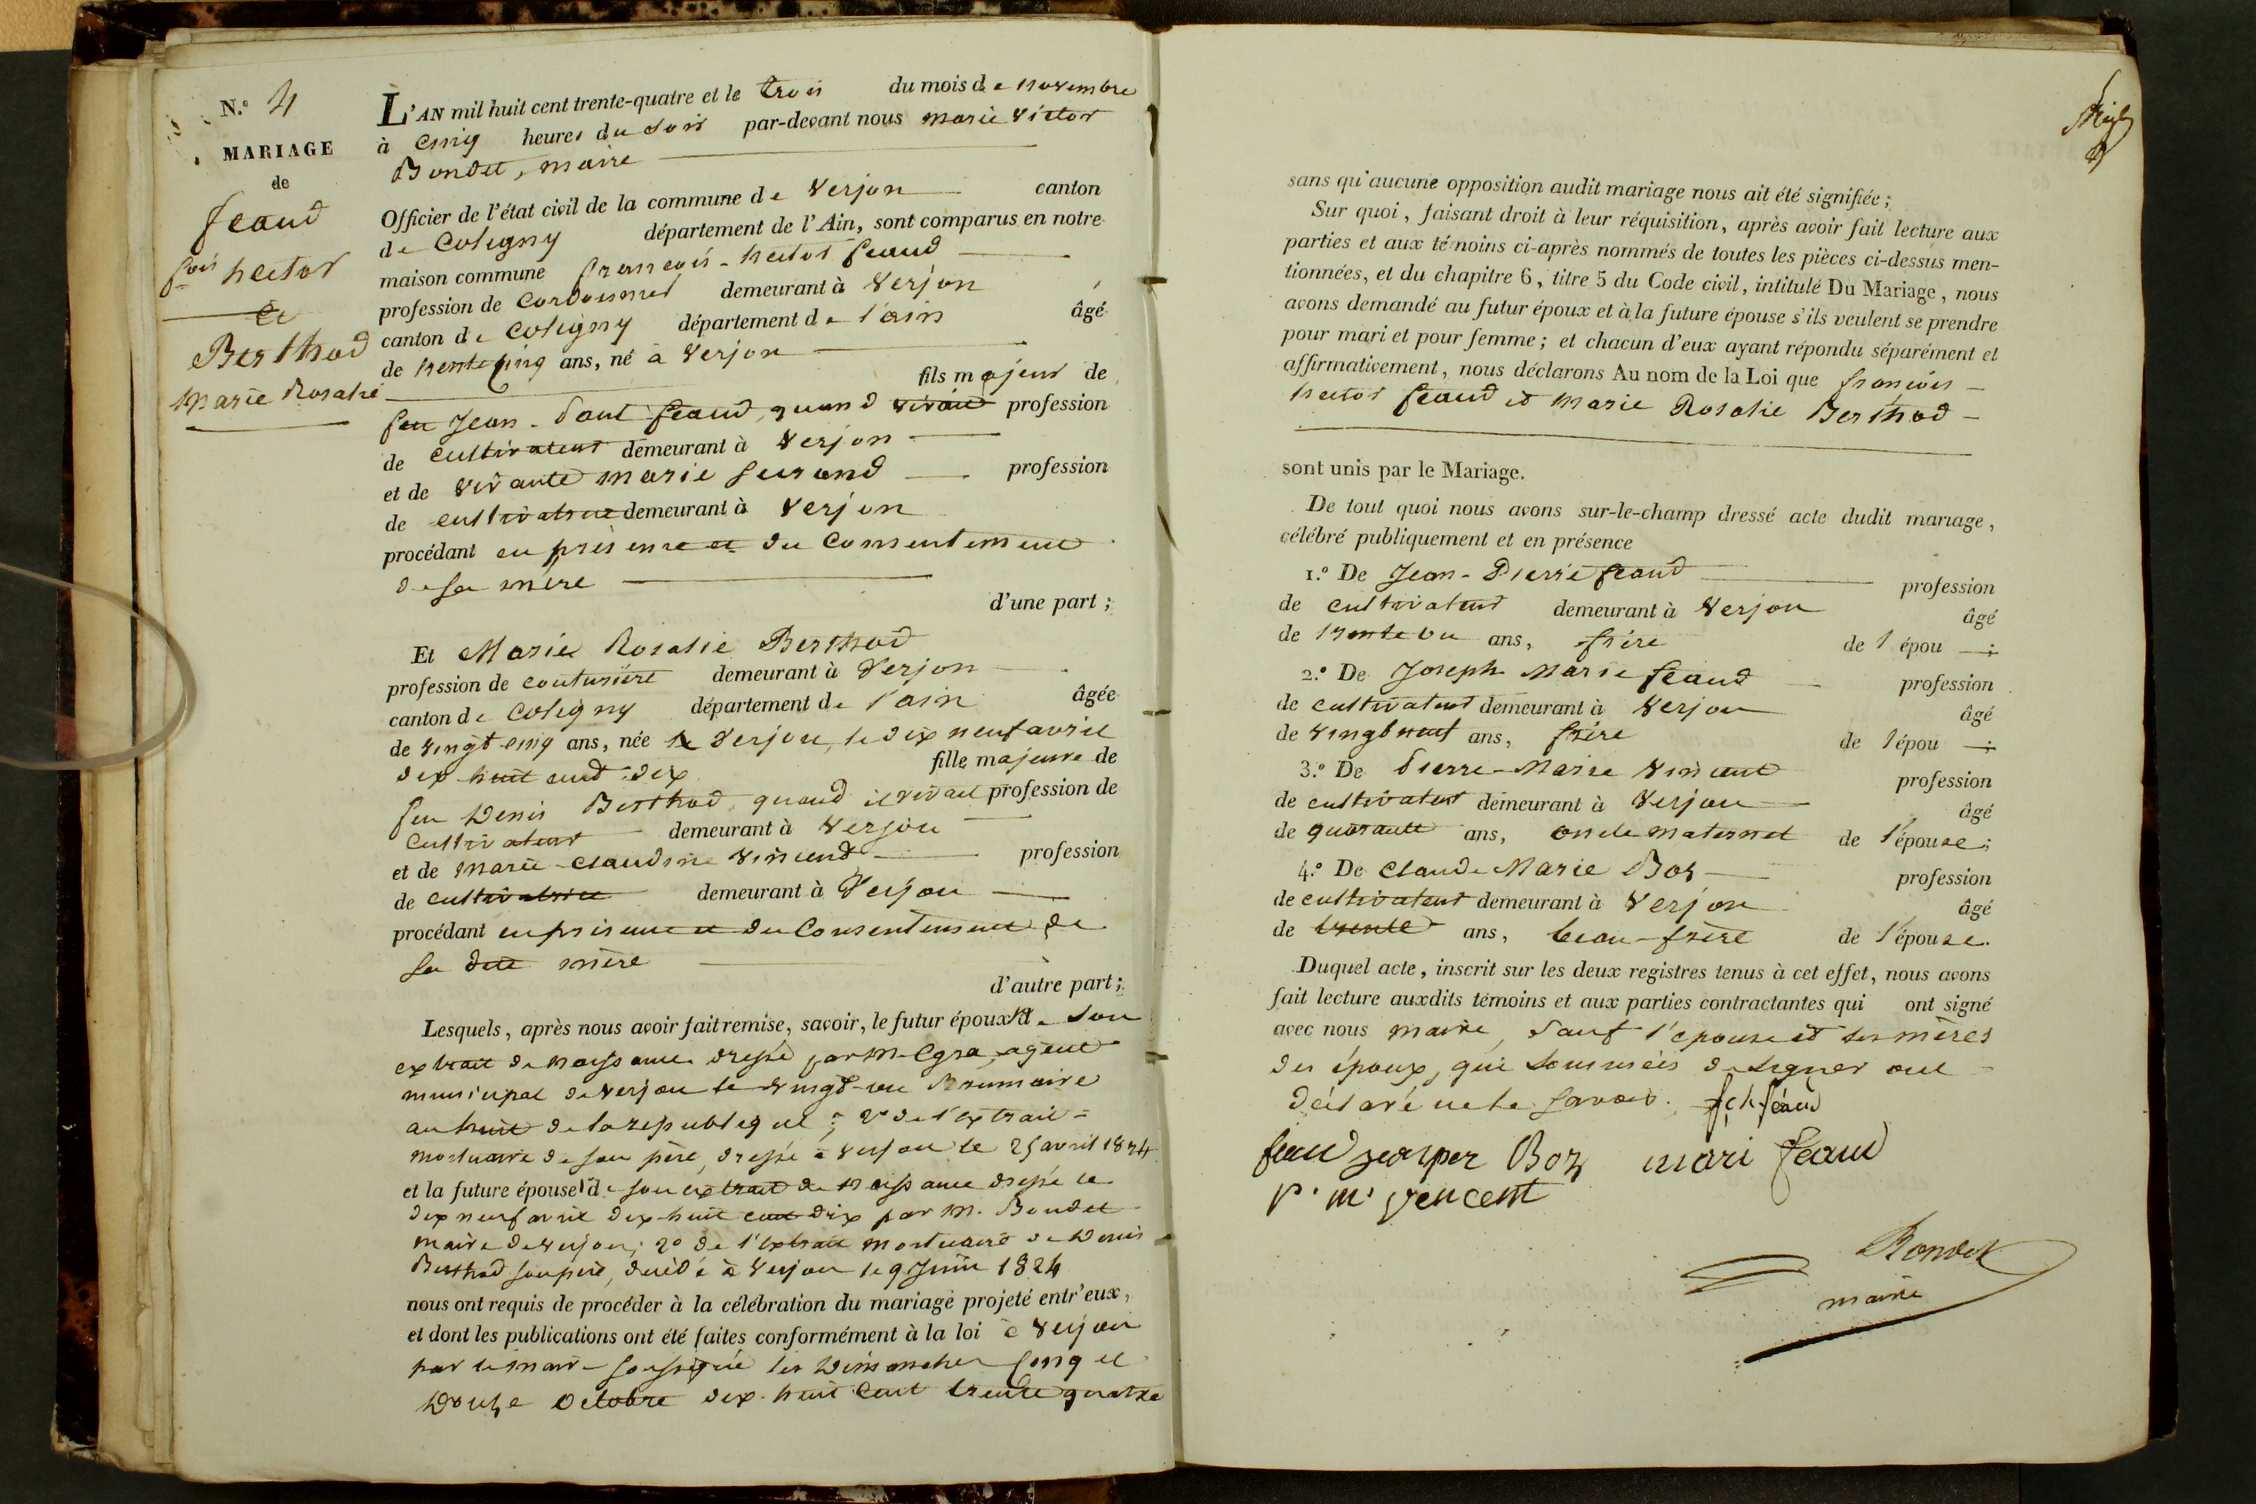 N.° 4
MARIAGE
de
feaud
fois hector
Et
Berthod
Marie Rosalie
L'AN mil huit cent trente-quatre et le trois du mois de novembre
à cinq heures du soir par-devant nous marie victor
Bondet, maire
Officier de l'état civil de la commune de Verjon canton
de Coligny département de l'Ain, sont comparus en notre
maison commune françois-hector feaud
profession de cordonnier demeurant à Verjon,
canton de Coligny département de l'ain âgé
de trente cinq ans, né à Verjon
fils majeur de
feu Jean-Paul feaud, quand vivait profession
de cultivateur demeurant à Verjon
et de vivante marie furand profession
de cultivatrice demeurant à Verjon
procédant en présence et du Consentement
de sa mère
d'une part;
Et Marie Rosalie Berthod
profession de couturière demeurant à Verjon
canton de Coligny département de l'ain âgée
de vingt-cinq ans, née à Verjon, le dix neuf avril
dix-huit cent-dix fille majeure de
feu Denis Berthod, quand il vivait profession de
cultivateur demeurant à Verjon
et de marie-claudine Vincent profession
de cultivatrice demeurant à Verjon
procédant en présence et du Consentement de
sa dite mère
d'autre part;
Lesquels, après nous avoir fait remise, savoir, le futur époux 1° de son
extrait de naissance dressé par M. agent
municipal de Verjon le vingt-un Brumaire
an huit de la république; 2° de l'extrait
mortuaire de son père, dressé à Verjon le 25 avril 1834
et la future épouse 1° de son extrait de naissance dressé le
dix neuf avril dix-huit cent dix par M. Bondet
maire de Verjon; 2° de l'extrait mortuaire de Denis
Berthod son père, décédé à Verjon le 9 Juin 1824
nous ont requis de procéder à la célébration du mariage projeté entr'eux,
et dont les publications ont été faites conformément à la loi à Verjon
par le maire soussigné les Dimanches Cinq et
Douze Octobre dix-huit cent trente quatre
sans qu'aucune opposition audit mariage nous ait été signifiée;
Sur quoi, faisant droit à leur réquisition, après avoir fait lecture aux
parties et aux témoins ci-après nommés de toutes les pièces ci-dessus men-
tionnées, et du chapitre 6, titre 5 du Code civil, intitulé Du Mariage, nous
avons demandé au futur époux et à la future épouse s'ils veulent se prendre
pour mari et pour femme; et chacun d'eux ayant répondu séparément et
affirmativement, nous déclarons Au nom de la Loi que françois-
hector feaud et Marie Rosalie Berthod
sont unis par le Mariage.
De tout quoi nous avons sur-le-champ dressé acte dudit mariage,
célébré publiquement et en présence
1.° De Jean-Pierre feaud profession
de cultivateur demeurant à Verjon âgé
de trente un ans, frère de l'épou;
2.° De Joseph Marie feaud profession
de cultivateur demeurant à Verjon âgé
de vingt neuf ans, frère de l'épou;
3.° De Pierre-Marie Vincent profession
de cultivateur demeurant à Verjon âgé
de quarante ans, oncle maternel de l'épouse;
4.° De Claude Marie Boz profession
de cultivateur demeurant à Verjon âgé
de trente ans, beau-frère de l'épouse.
Duquel acte, inscrit sur les deux registres tenus à cet effet, nous avons
fait lecture auxdits témoins et aux parties contractantes qui ont signé
avec nous maire, sauf l'epouse et les mères
des époux, qui sommées de signer ont
déclaré ne le savoir. fch féaud
feaud Boz mari feaud
P. m. vencent
Bondet
maire